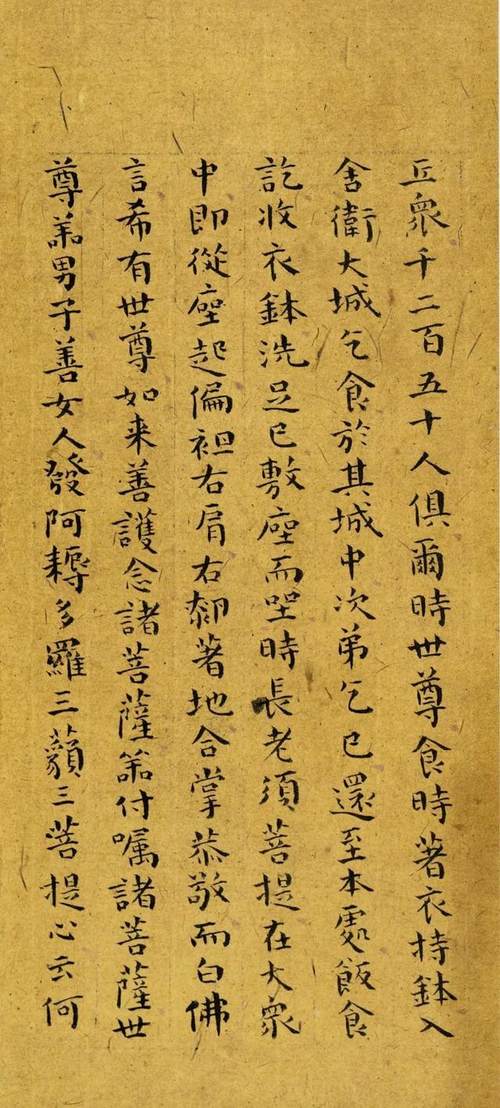 丘衆千二百五十人俱爾時世尊食時著衣持鉢入
舍衛大城乞食於其城中次弟乞已還至本處飯食
訖收衣鉢洗足已敷座而坐時長老須菩提在大衆
中即從座起偏袒右肩右膝著地合掌恭敬而白佛
言希有世尊如来善護念諸菩薩善付嘱諸菩薩世
尊善男子善女人發阿耨多羅三藐三菩提心云何